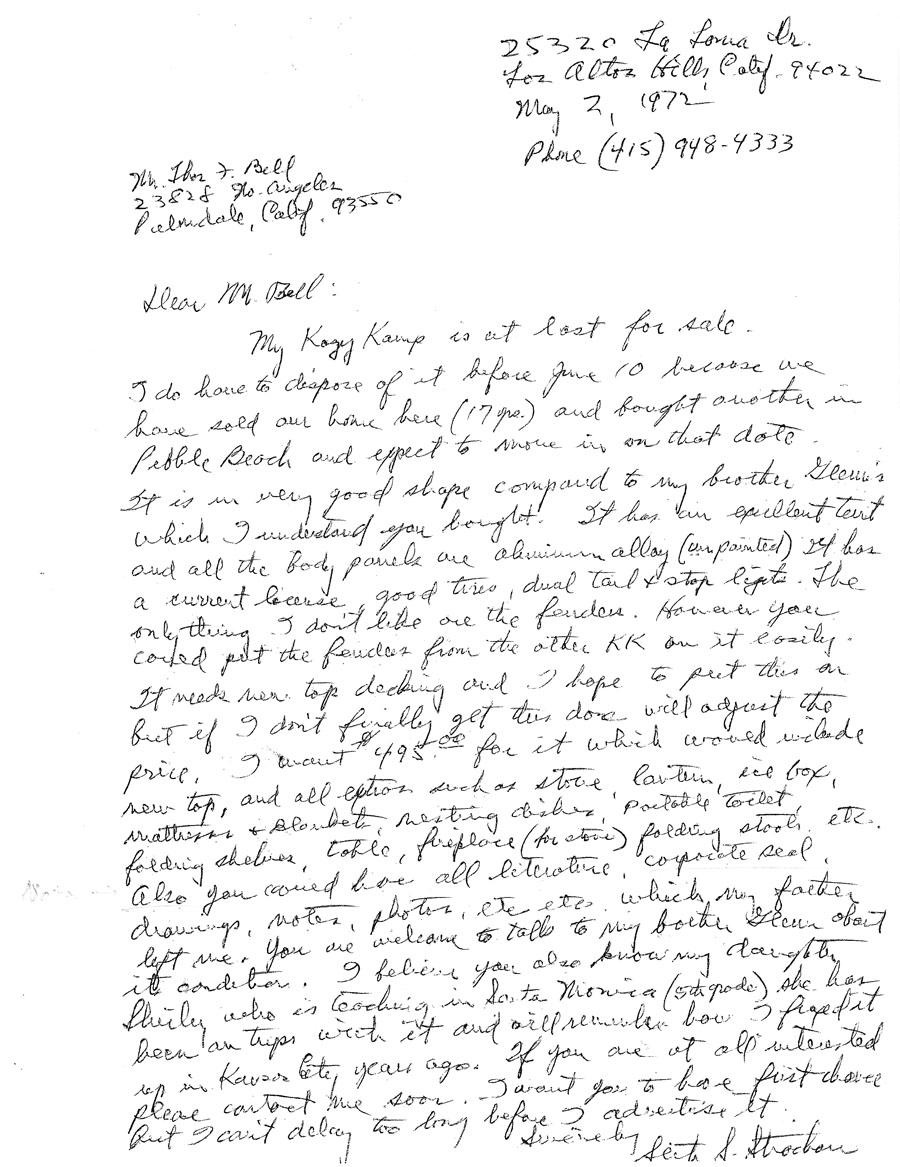 25320 La Loma Dr.
Los Altos Hills, Calif. 94022
May 2, 1972
Phone (415) 948-4333
Mr. Thos F. Bell
23828 No. Angeles
Palmdale, Calif. 93550
Dear Mr. Bell:
My Kozy Kamp is at last for sale.
I do have to dispose of it before June 10 because we
have sold our home here (17 yrs.) and bought another in
Pebble Beach and expect to move in on that date.
It is in very good shape compared to my brother Glenn's
which I understand you bought. It has an excellent tent
and all the body panels are aluminum alloy (unpainted) It has
a current license, good tires, dual tail & stop lights. The
only thing I don't like are the fenders. However you
could put the fenders from the other KK on it easily.
It needs new top decking and I hope to put this on
but if I don't finally get this done will adjust the
price. I want $495.00 for it which would include
new top, and all option such as stove, lantern, ice box,
mattress & blankets, nesting dishes, portable toilet,
folding shelves, table, fireplace (for stove) folding stools, etc.
Also you could have all literature, corporate seal,
drawings, notes, photos, etc etc. which my father
left me. You are welcome to talk to my brother Glenn about
it condition. I believe you also know my daughter
Shirley who is teaching in Santa Monica (5th grade) she has
been on trips with it and will remember how I fixed it
up in Kansas City years ago. If you are at all interested
please contact me soon. I want you to have first chance
But I can't delay too long before I advertise it.
Sincerely
S. Strachan